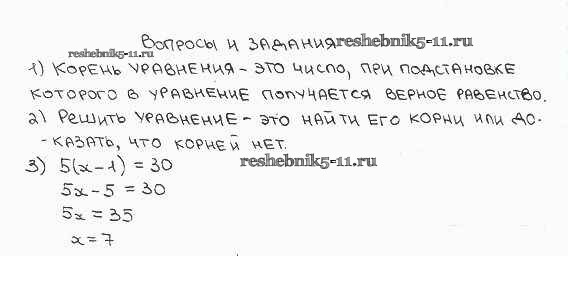 Вопросы и задания reshebnik5-11.ru
reshebnik5-11.ru
1) Корень уравнения – это число, при подстановке
которого в уравнение получается верное равенство.
2) Решить уравнение – это найти его корни или до-
-казать, что корней нет.
3) 5(x-1) = 30 reshebnik5-11.ru
5x-5 = 30
5x = 35
x=7